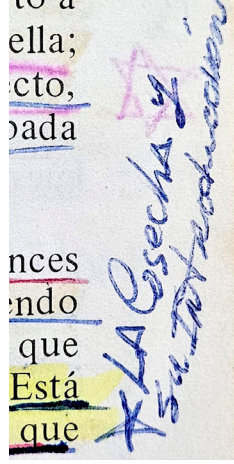 to a
ella;
ecto,
bada
nces
endo
que
Está
que
* LA Cosecha y
su Introducción